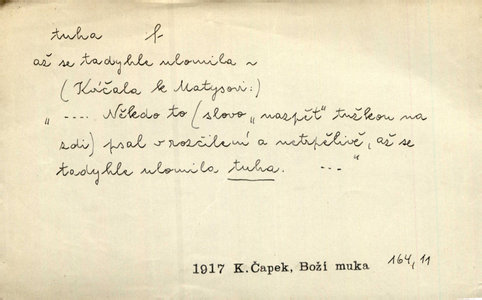 tuha f
až se tadyhle ulomila ~
(Kvíčala k Matysovi:)
" .... Někdo to (slovo „nazpět" tužkou na
zdi) psal v rozčilení a netrpělivě, až se
tadyhle ulomila tuha. ---"
1917 K.Čapek, Boží muka 164, 11